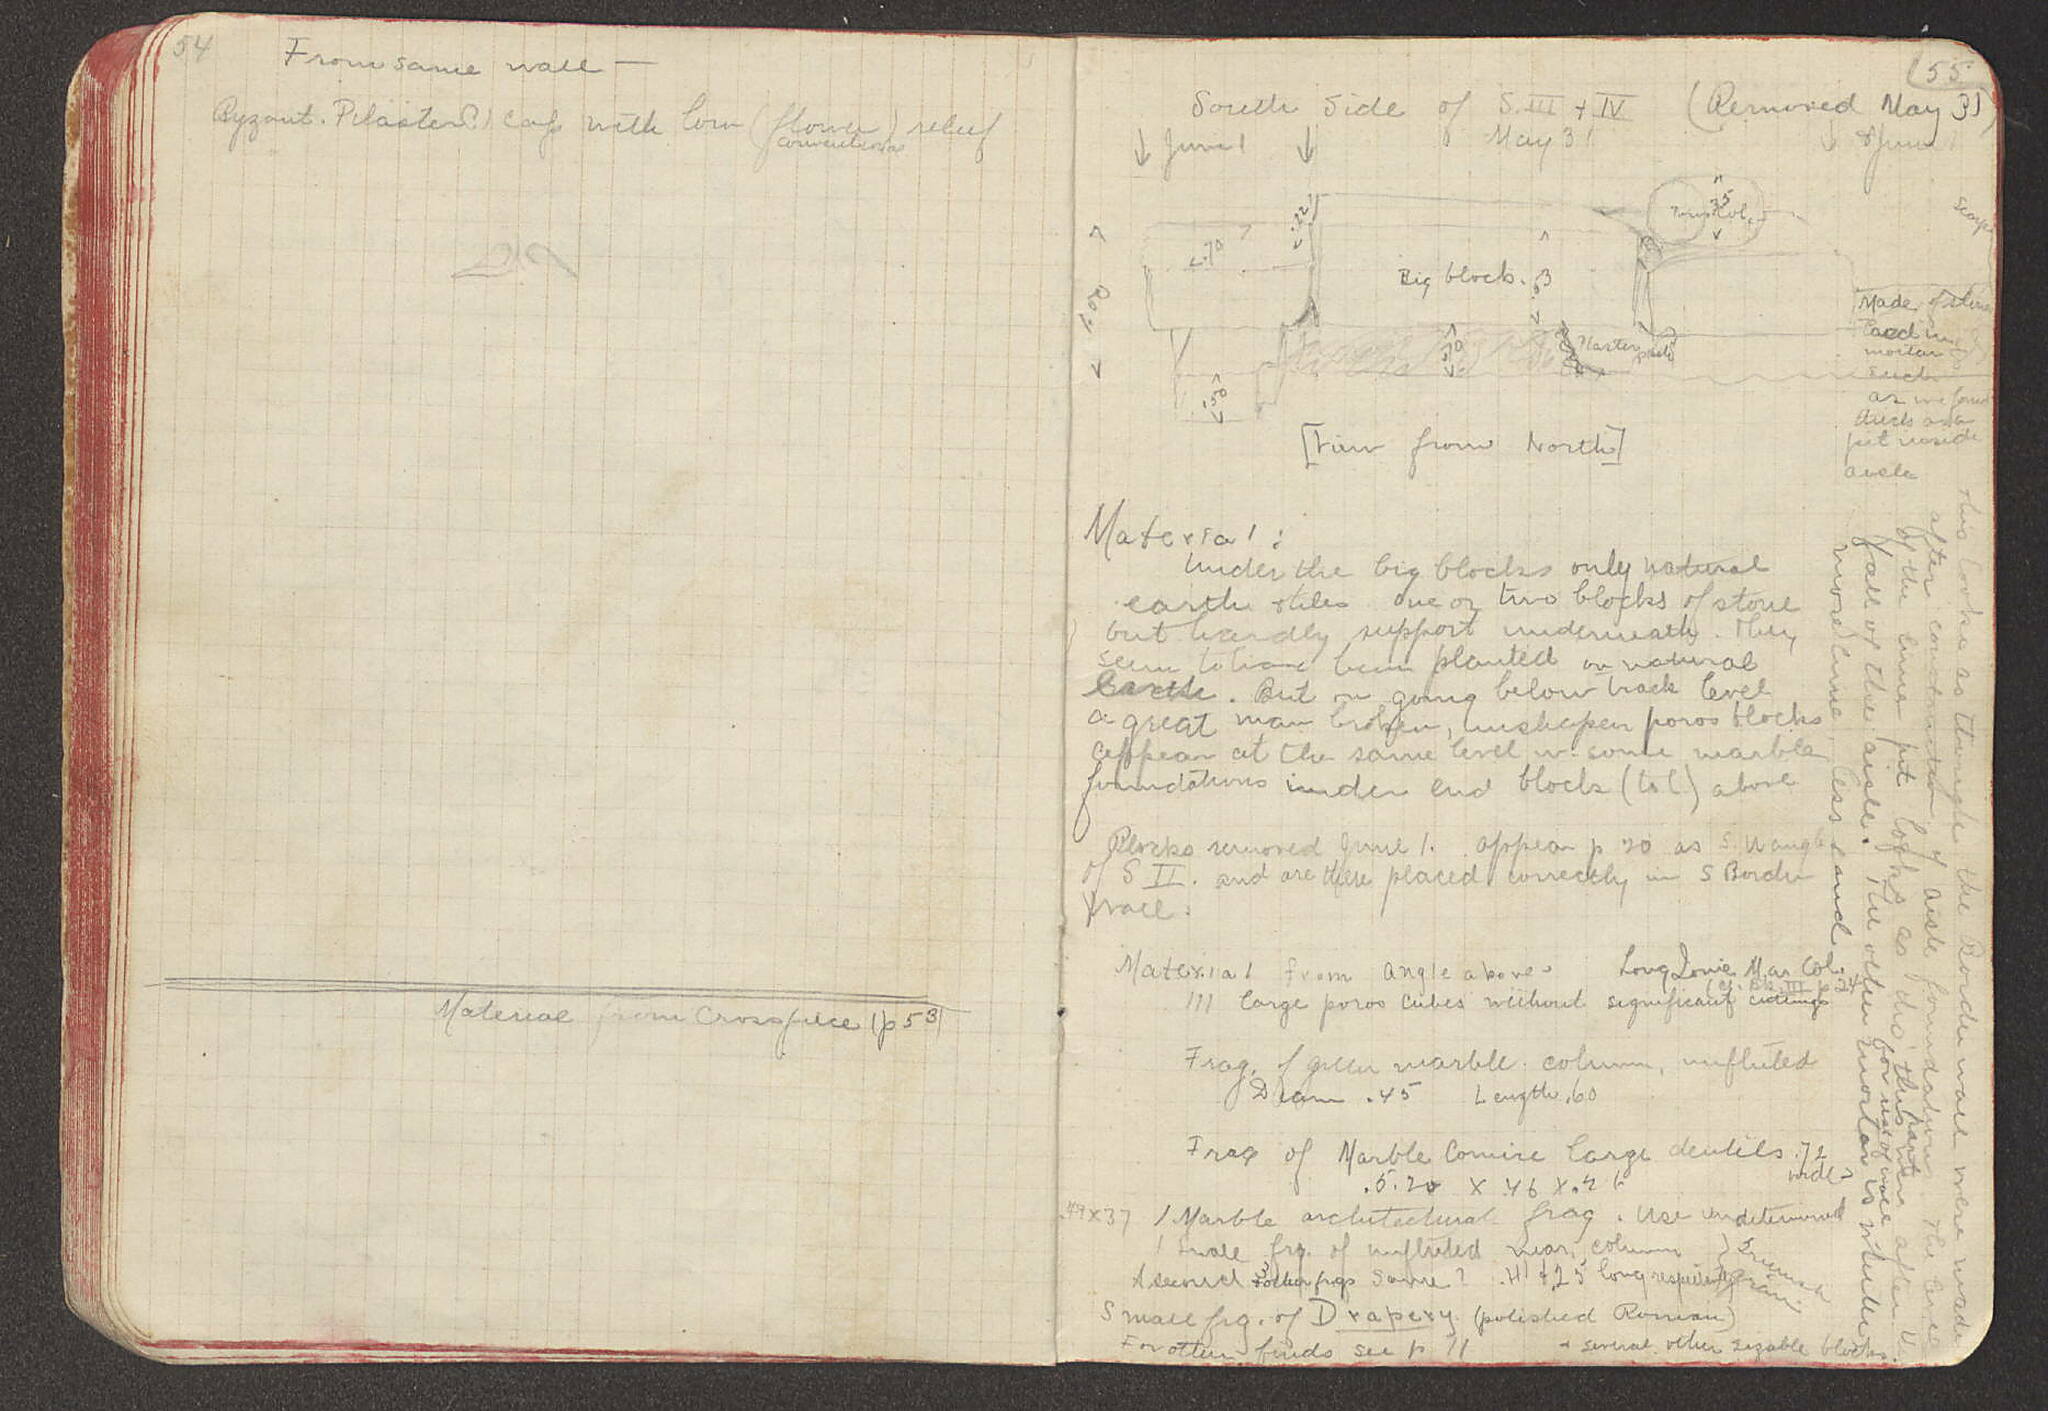 54
From same wall —
Byzant. Pilaster(?) cap with low (flower) relief
conventional
Material from Crosspiece (p 53)
55
South Side of S. III + IV (Removed May 31
June 1 May 31 & June 1
.35
.22
.70
Big block.
Plaster
.50
[View from North]
Made of stones
laced in
mortar
such
as we found
pit inside
aisle
Material:
Under the big blocks only natural
earth stiles one or two blocks of stone
but hardly support underneath. They
seem to have been planted on natural
earth. But on going below track level
a great many broken, unshapen poros blocks
appear at the same level w. some marble
foundations under end block (to l) above
Blocks removed June 1. appear p 20 as S. W angle
of S II. and are there placed correctly in S Border
Wall.
Material from angle above. Long Ionic Mar. Col.
(cf. Bk. III p 24
III large poros cubes without significant cuttings
Frag. of green marble column, unfluted
Diam .45 Length .60
Frag of Marble Cornice large dentils .72
wide
.49x37 1 Marble architectural frag. Use undetermined
1 small frg. of unfluted mar. column
A second 3 other frgs same? .41 + .25 long respectively
Small frg. of Drapery (polished Roman)
For other finds see p 11 + several other sizable blocks.
This looks as though the Border wall were made
after construction of aisle foundations. The line
of the lime pit looks as tho' this part after the
for use of wall
fall of the aisle. The other mortar is
more lime, less sand